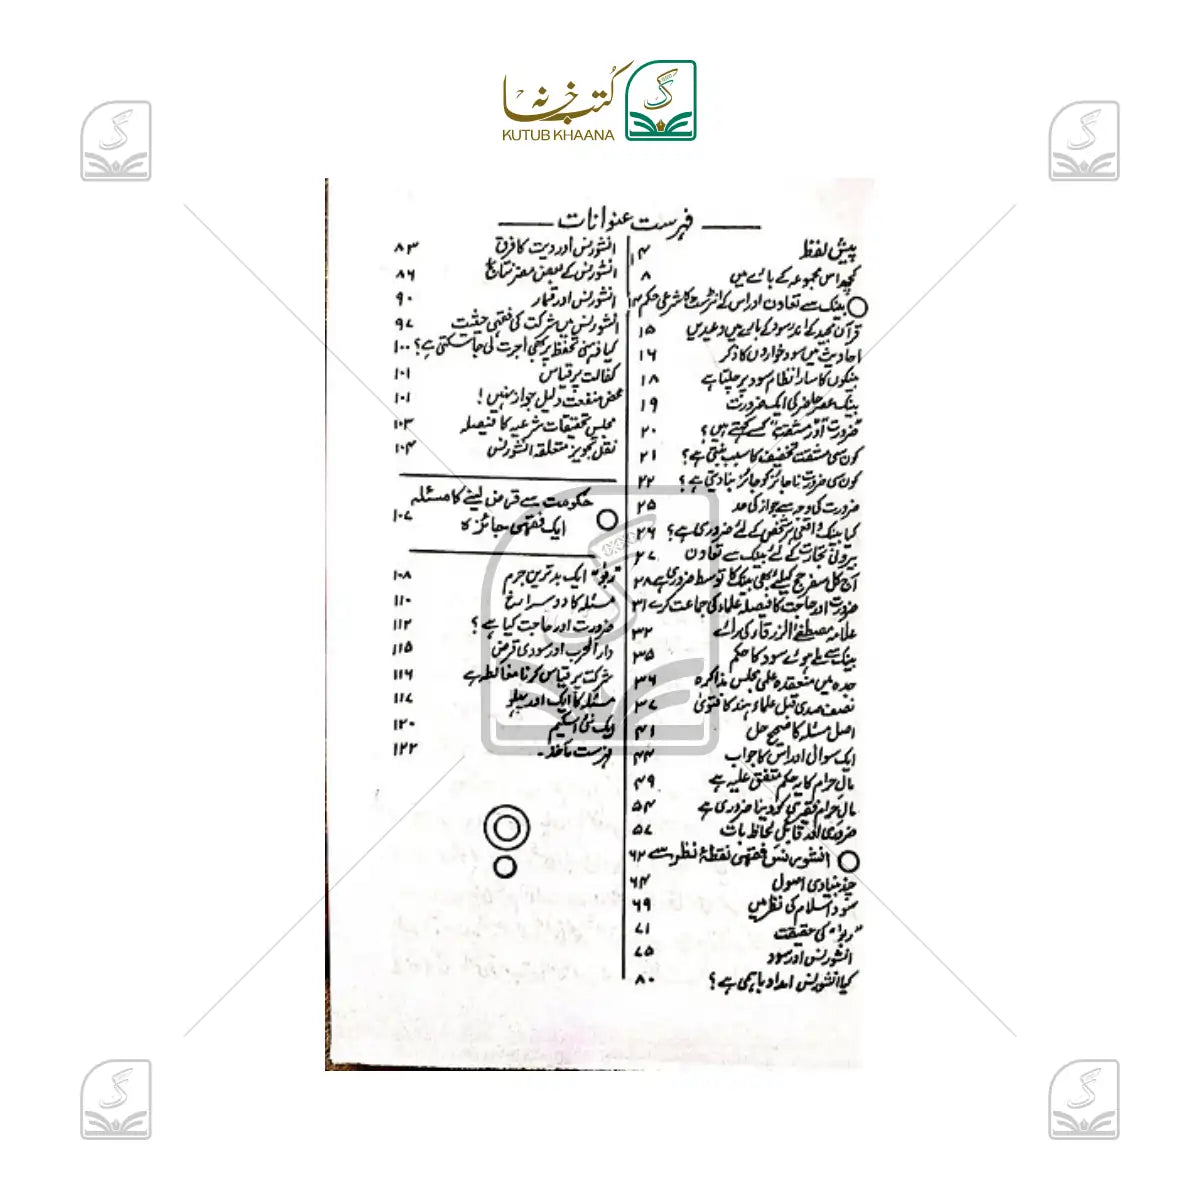 کتب خانہ
KUTUB KHAANA
فہرست عنوانات
پیش لفظ ۴
کچھ اس مجموعہ کے بارے میں ۸
بینک سے تعاون اور اس کے انٹرسٹ کا شرعی حکم ۱۳
قرآن مجید کے اندر سود کے بارے میں وعیدیں ۱۵
احادیث میں سود خواروں کا ذکر ۱۶
بینکوں کا سارا نظام سود پر چلتا ہے ۱۸
بینک عصر حاضر کی ایک ضرورت ۱۹
"ضرورت" اور "مشقت" کسے کہتے ہیں؟ ۲۰
کون سی مشقت تخفیف کا سبب بنتی ہے؟ ۲۱
کون سی ضرورت ناجائز کو جائز بنا دیتی ہے؟ ۲۲
ضرورت کی وجہ سے جواز کی حد ۲۵
کیا بینک واقعی ہر شخص کے لئے ضروری ہے؟ ۲۶
بیرونی تجارت کے لئے بینک سے تعاون ۲۷
آج کل سفر حج کیلئے بھی بینک کا توسط ضروری ہے ۲۸
ضرورت اور حاجت کا فیصلہ علماء کی جماعت کرے ۳۱
علامہ مصطفےٰ الزرقاء کی رائے ۳۲
بینک سے ملے ہوئے سود کا حکم ۳۵
جدہ میں منعقدہ علمی مجلس مذاکرہ ۳۶
نصف صدی قبل علماء ہند کا فتویٰ ۳۷
اصل مسئلہ کا صحیح حل ۴۱
ایک سوال اور اس کا جواب ۴۴
مال حرام کا یہ حکم متفق علیہ ہے ۴۹
مال حرام فقیر ہی کو دینا ضروری ہے ۵۴
ضروری اور قابل لحاظ بات ۵۷
انشورنس فقہی نقطۂ نظر سے ۶۲
چند بنیادی اصول ۶۴
سود اسلام کی نظر میں ۶۹
"ربوٰ" کی حقیقت ۷۱
انشورنس اور سود ۷۵
کیا انشورنس امداد باہمی ہے؟ ۸۰
انشورنس اور دیت کا فرق ۸۳
انشورنس کے بعض مضر نتائج ۸۶
انشورنس اور قمار ۹۰
انشورنس میں شرکت کی فقہی حیثیت ۹۷
کیا فرضی تحفظ پر بھی اجرت لی جا سکتی ہے؟ ۱۰۰
کفالت پر قیاس ۱۰۱
محض منفعت دلیل جواز نہیں! ۱۰۱
مجلس تحقیقات شرعیہ کا فیصلہ ۱۰۳
نقل تجویز متعلقہ انشورنس ۱۰۴
حکومت سے قرض لینے کا مسئلہ
ایک فقہی جائزہ ۱۰۷
"ربوٰ" ایک بدترین جرم ۱۰۸
مسئلہ کا دوسرا رخ ۱۱۰
ضرورت اور حاجت کیا ہے؟ ۱۱۲
دارالحرب اور سودی قرض ۱۱۵
شرکت پر قیاس کرنا مغالطہ ہے ۱۱۶
مسئلہ کا ایک اور پہلو ۱۱۷
ایک نئی اسکیم ۱۲۰
فہرست مآخذ۔ ۱۲۲